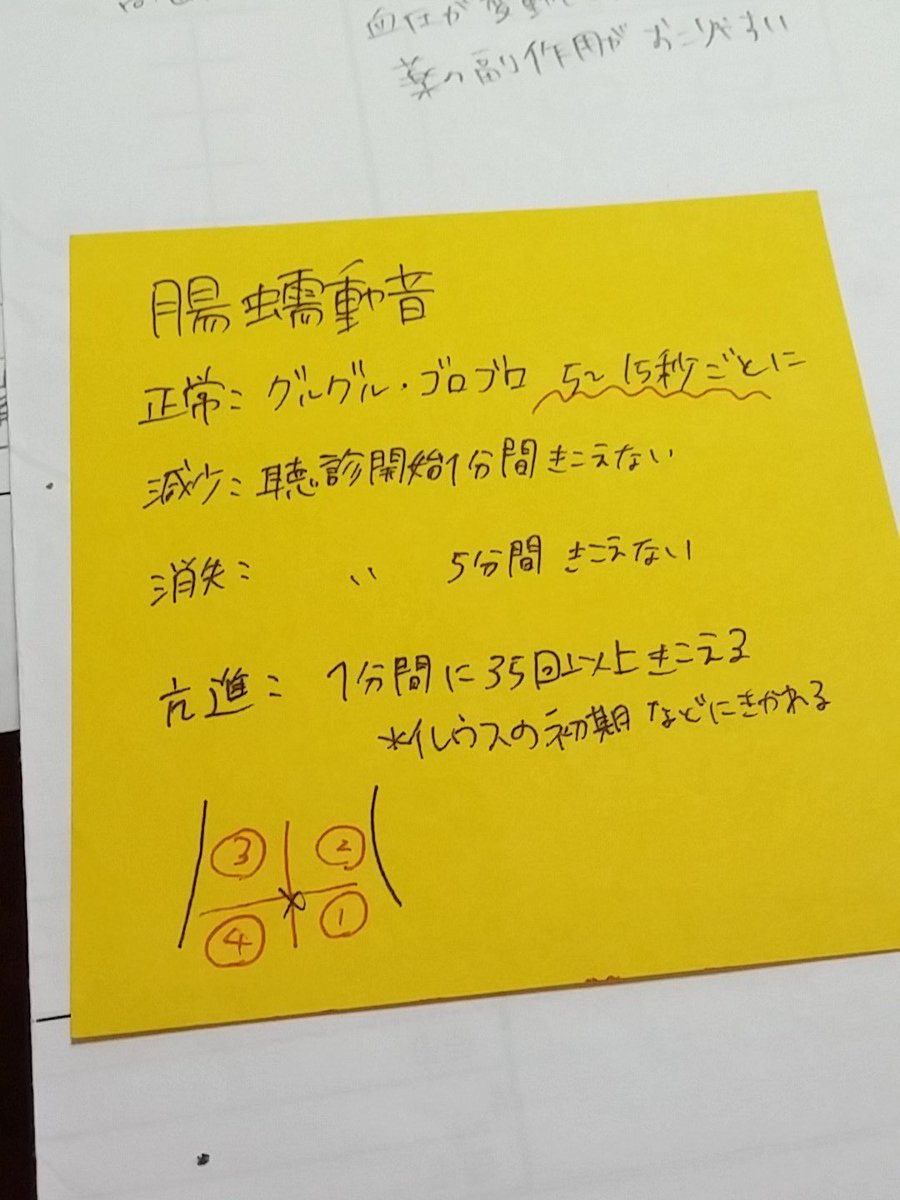 血圧が変動
薬の副作用が おこりやすい
腸蠕動音
正常: グルグル・ゴロゴロ 5~15秒ごとに
減少: 聴診開始1分間きこえない
消失: 〃 5分間 きこえない
亢進: 1分間に35回以上きこえる
*イレウスの初期 などにきかれる
③ ②
④ ①